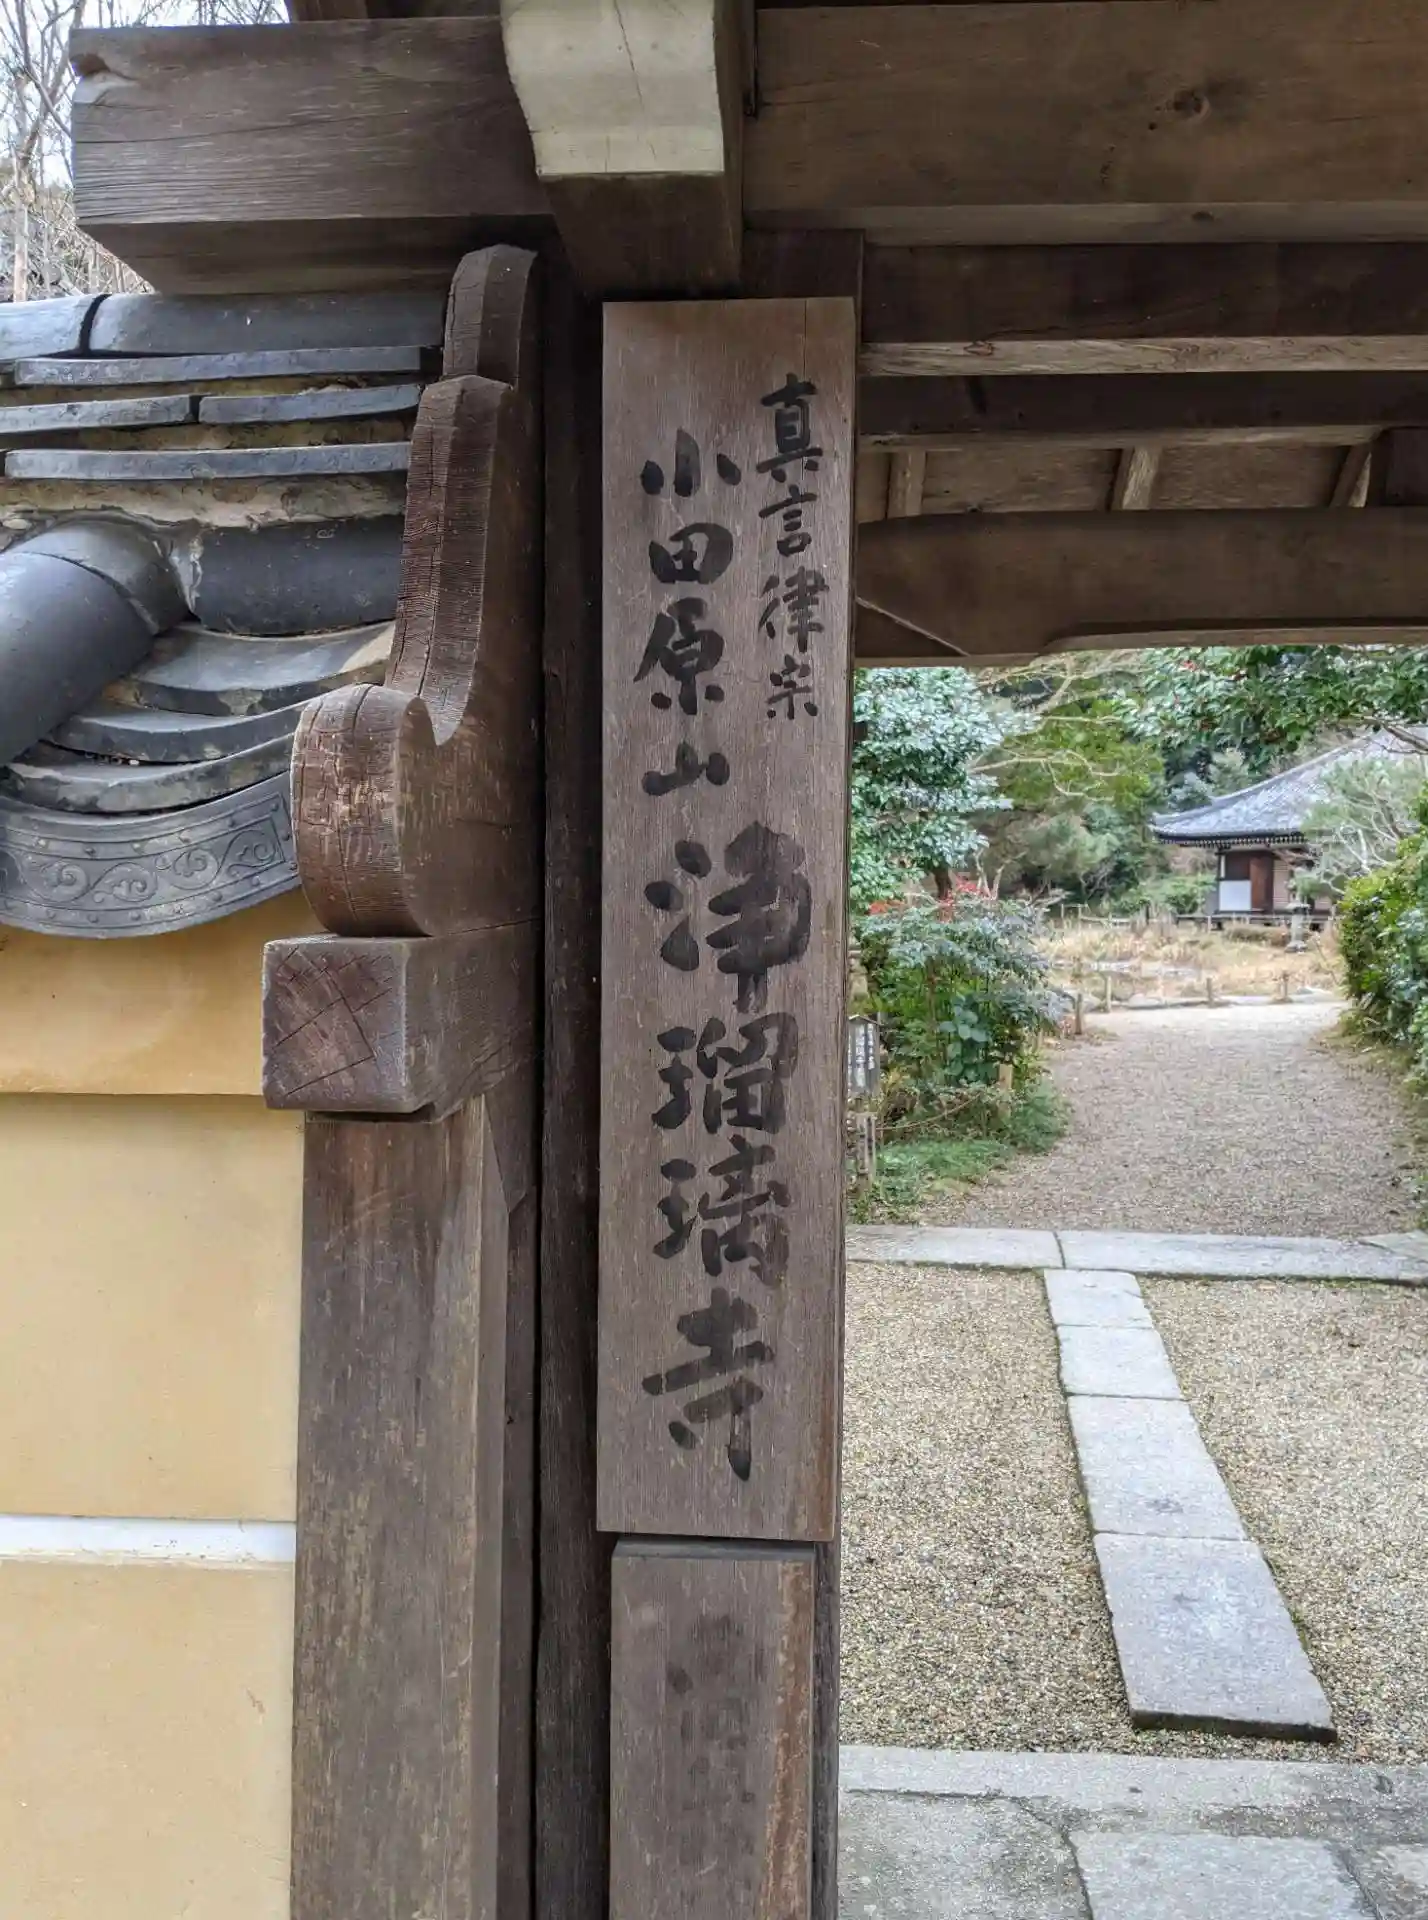 真言律宗
小田原山浄瑠璃寺